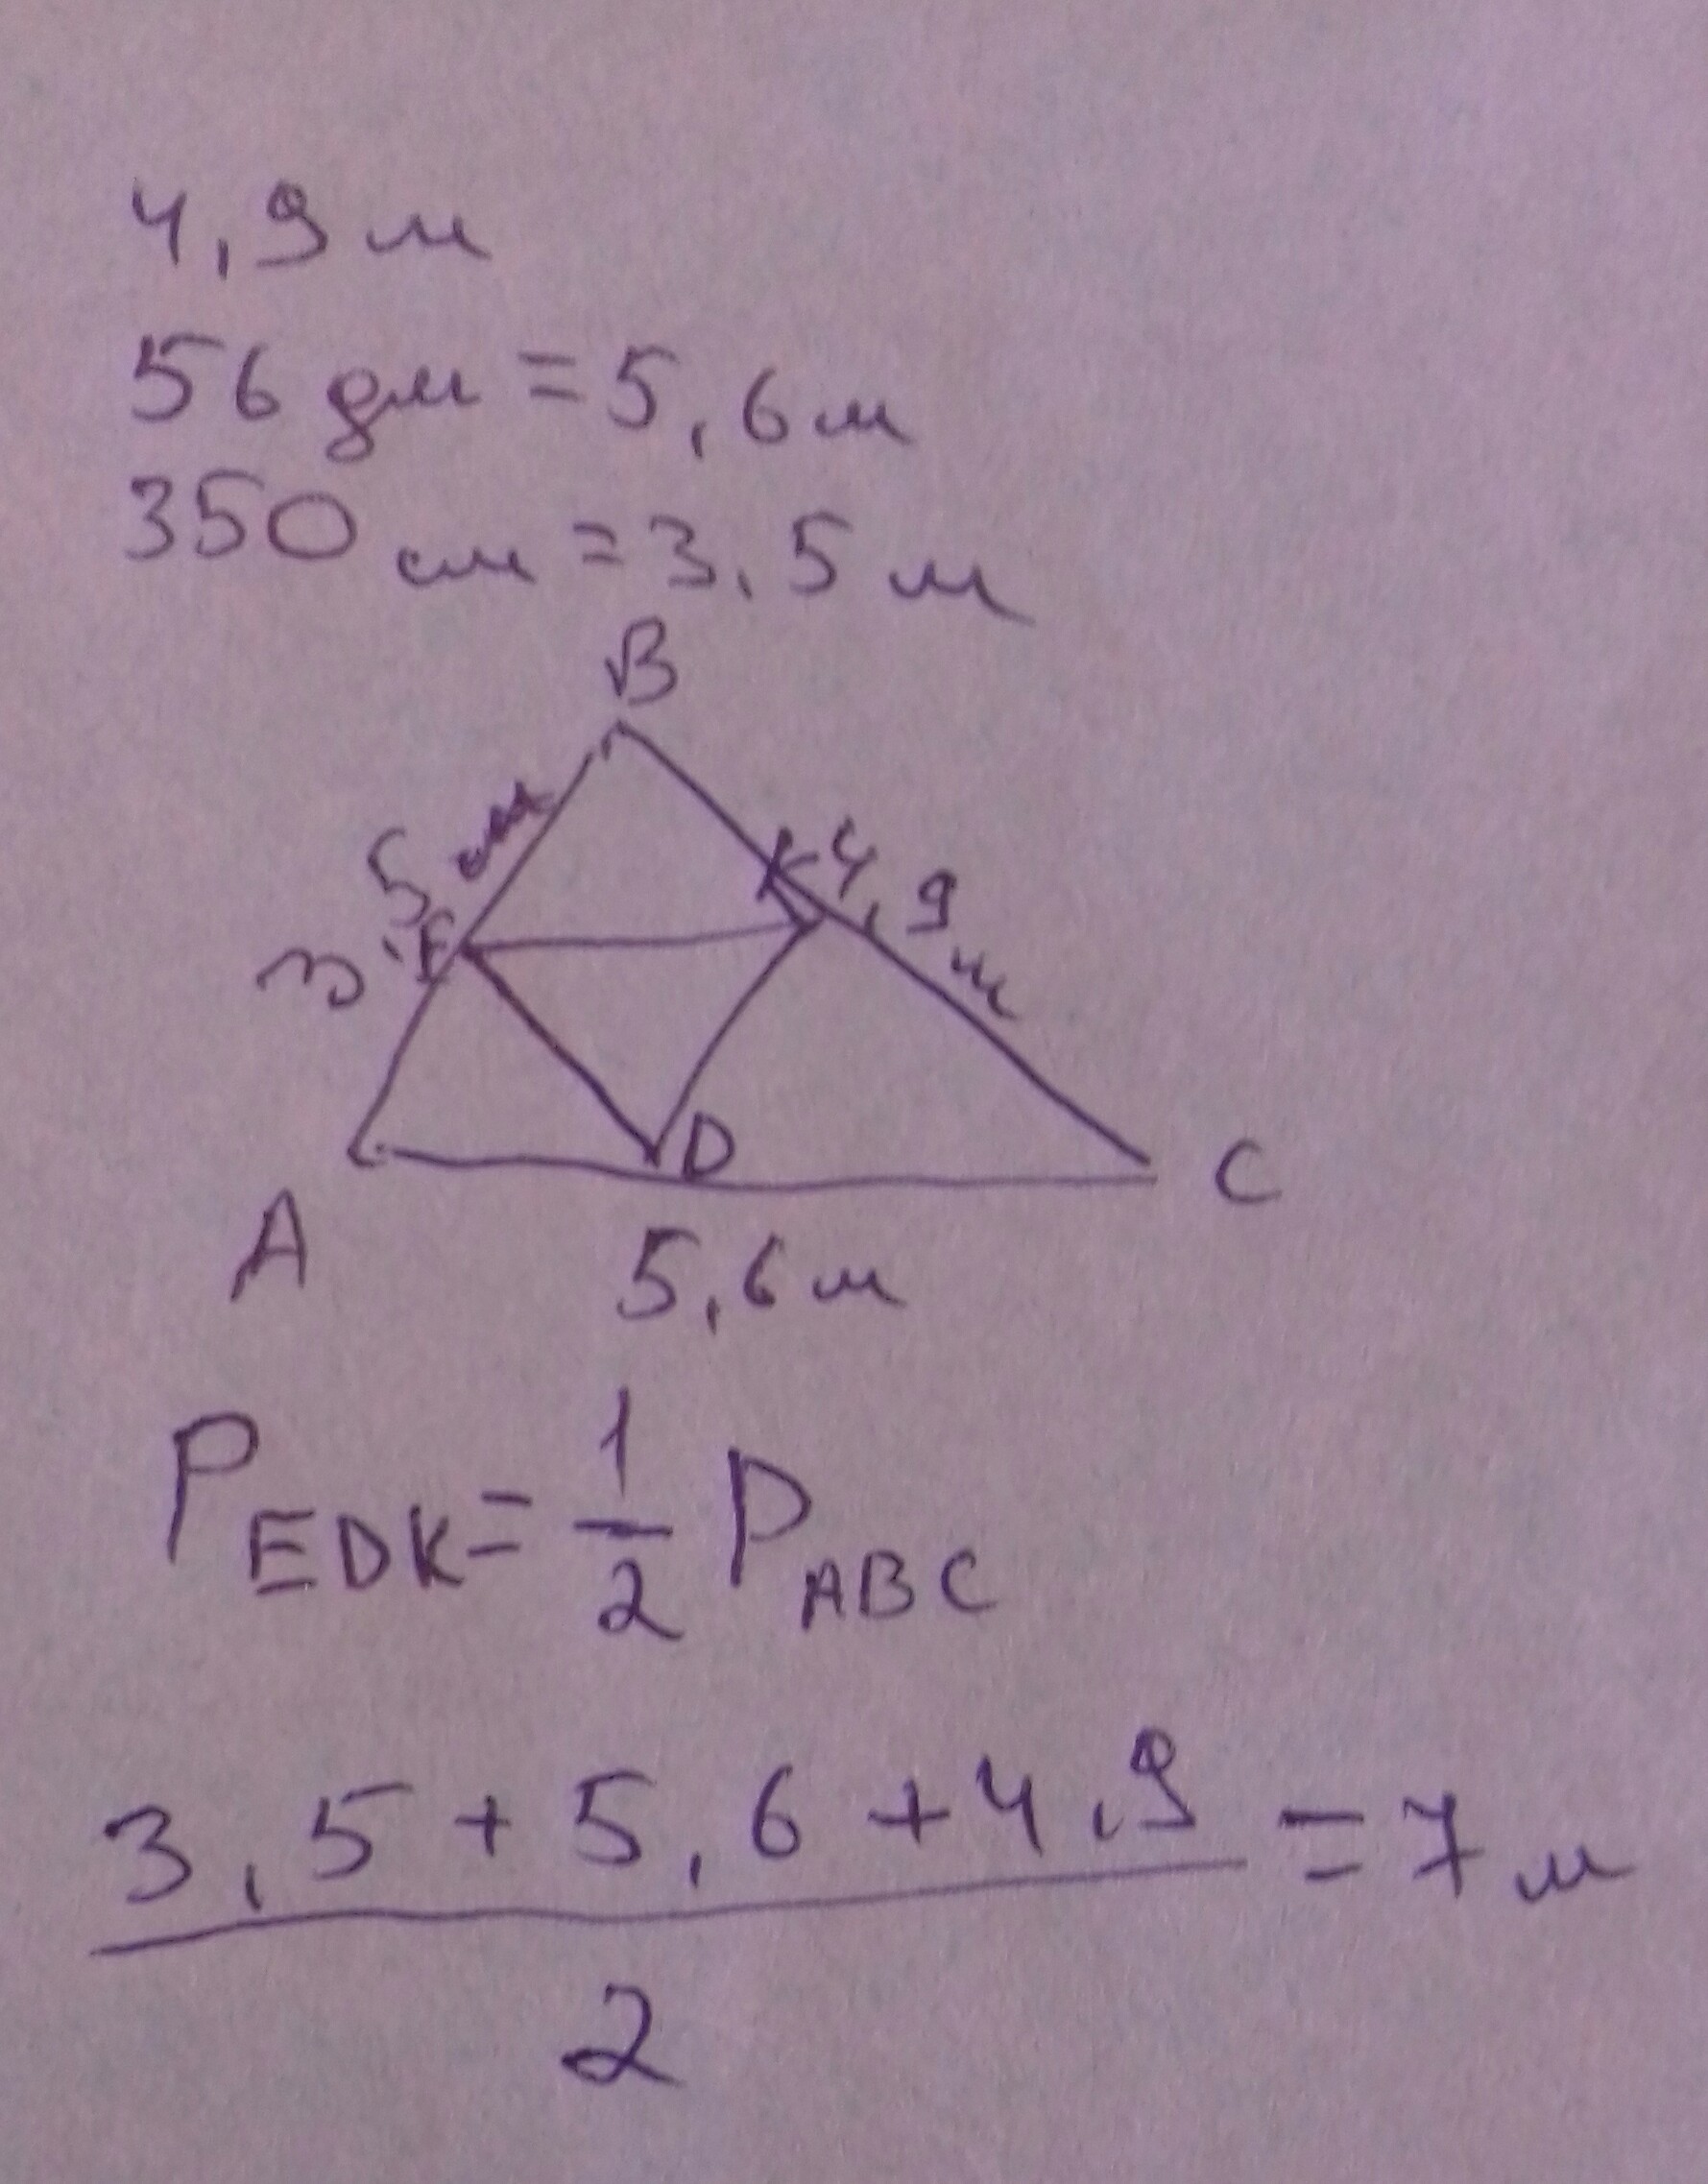 4,9 м
56 дм = 5,6 м
350 см = 3,5 м
B
3,5 м
E
K
4,9 м
D
A
C
5,6 м
P EDK = 1/2 P ABC
3,5 + 5,6 + 4,9 = 7 м
2